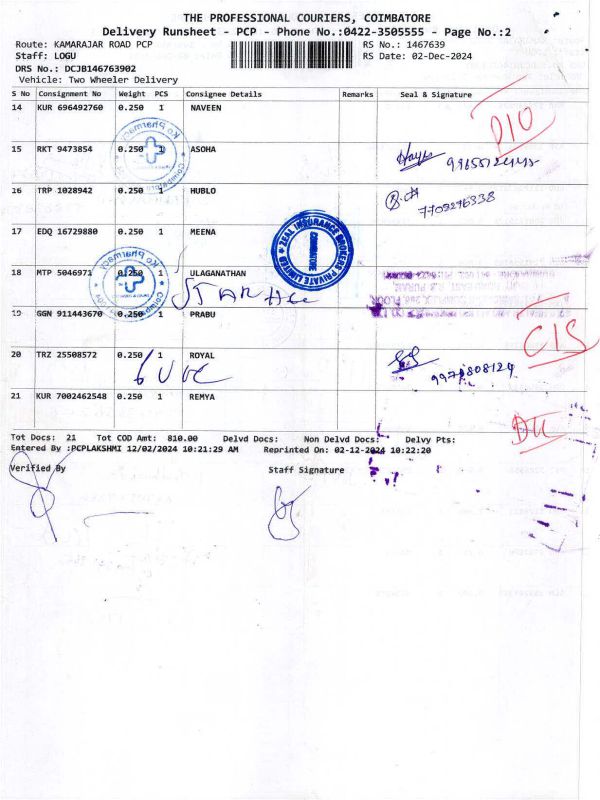 THE PROFESSIONAL COURIERS, COIMBATORE
Delivery Runsheet - PCP - Phone No.:0422-3505555 - Page No.:2
Route: KAMARAJAR ROAD PCP RS No.: 1467639
Staff: LOGU RS Date: 02-Dec-2024
DRS No.: DCJB146763902
Vehicle: Two Wheeler Delivery
S No Consignment No Weight PCS Consignee Details Remarks Seal & Signature
14 KUR 696492760 0.250 1 NAVEEN
D10
15 RKT 9473854 0.250 1 ASOHA
16 TRP 1028942 0.250 1 HUBLO
7709276338
17 EDQ 16729880 0.250 1 MEENA
ZEAL INSURANCE BROKERS PRIVATE LIMITED
COIMBATORE
Ko Pharmacy
Coimbatore
18 MTP 5046971 0.250 1 ULAGANATHAN
STAR
19 GGN 911443670 0.250 1 PRABU
C1S
20 TRZ 25508572 0.250 1 ROYAL
9976808124
21 KUR 7002462548 0.250 1 REMYA
Tot Docs: 21 Tot COD Amt: 810.00 Delvd Docs: Non Delvd Docs: Delvy Pts:
Entered By :PCPLAKSHMI 12/02/2024 10:21:29 AM Reprinted On: 02-12-2024 10:22:20
Verified By Staff Signature